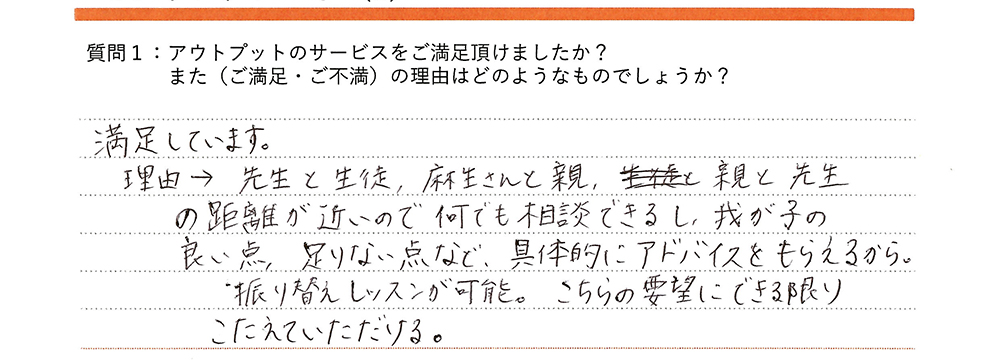 質問１：アウトプットのサービスをご満足頂けましたか？
また（ご満足・ご不満）の理由はどのようなものでしょうか？
満足しています。
理由→ 先生と生徒, 麻生さんと親, 親と先生
の距離が近いので何でも相談できるし, 我が子の
良い点, 足りない点など、具体的にアドバイスをもらえるから。
・振り替えレッスンが可能。 こちらの要望にできる限り
こたえていただける。